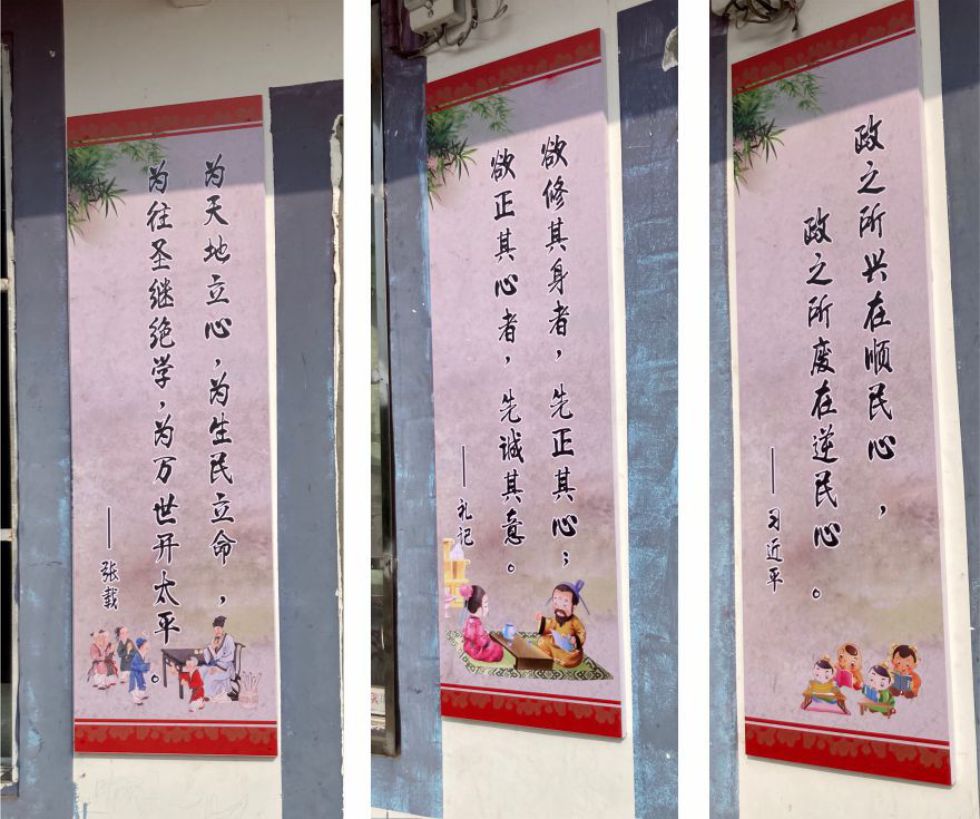 为天地立心，为生民立命，
为往圣继绝学，为万世开太平。
——张载
欲修其身者，先正其心；
欲正其心者，先诚其意。
——礼记
政之所兴在顺民心，
政之所废在逆民心。
——习近平